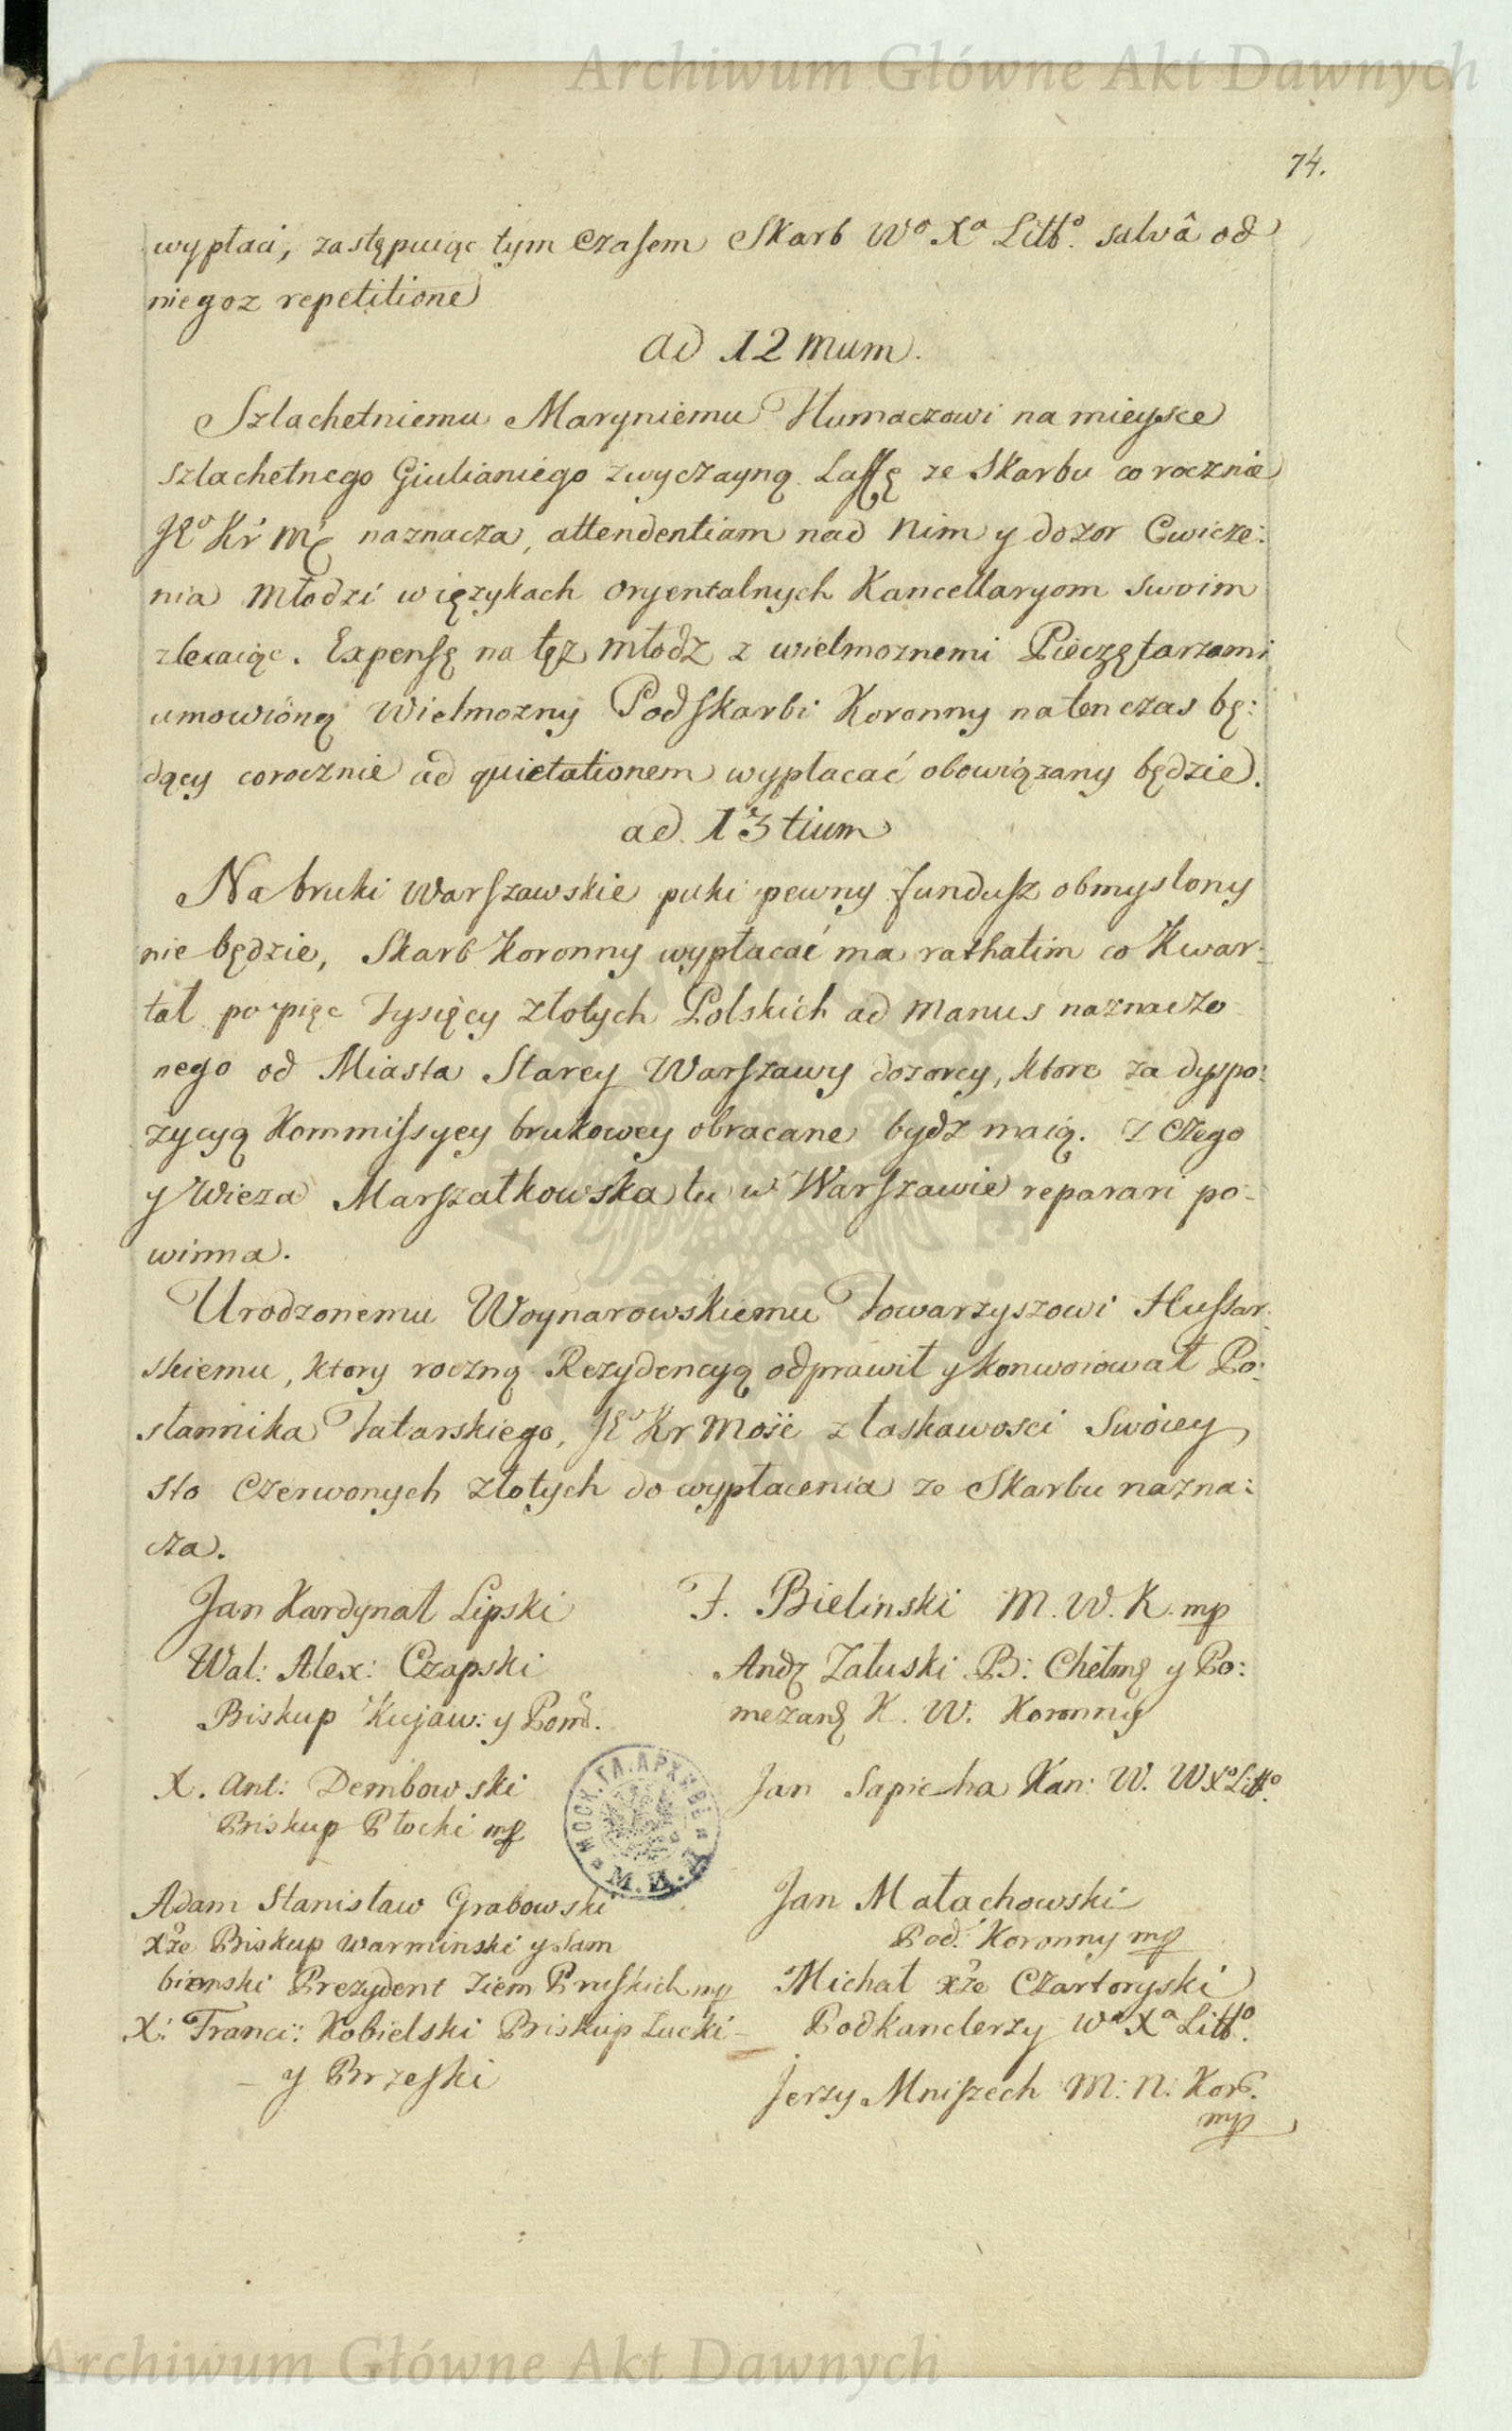 Archiwum Główne Akt Dawnych
74.
wypłaci, zastępuiąc tym Czasem Skarb Wº Xª Littº. salvâ od
niegoz repetitione
ad 12mum.
Szlachetniemu Maryniemu Tłumaczowi na mieysce
szlachetnego Giulianiego zwyczayną Laffę ze Skarbu co rocznie
JKº Kr Mć naznacza, attendentiam nad Nim y dozor Cwicze:
nia Młodzi w ięzykach Oryentalnych Kancellaryom swoim
zlecaiąc. Expensę na tęz Młodz z wielmoznemi Pieczętarzami
umowioną Wielmozny Podskarbi Koronny naten czas bę:
dący corocznie ad quietationem wypłacać obowiązany będzie.
ad 13tium
Na bruki Warszawskie puki pewny fundusz obmyslony
nie będzie, Skarb Koronny wypłacać ma rathatim co Kwar-
tał po pięc Tysięcy Złotych Polskich ad Manus naznaczo-
nego od Miasta Starey Warszawy dozorcy, ktore za dyspo:
zycyą Kommissyey brukowey obracane bydz maią. Z Czego
y Wieza Marszałkowska tu w Warszawie reparari po-
winna.
Urodzonemu Woynarowskiemu Towarzyszowi Hussar-
skiemu, ktory roczną Rezydencyą odprawił y konwoiował Po:
słannika Tatarskiego, JKº Kr Mość z łaskawosci Swoiey
sto Czerwonych Złotych do wypłacenia ze Skarbu nazna:
cza.
Jan Kardynał Lipski
Wal: Alex: Czapski
Biskup Kujaw: y Pom.
X. Ant: Dembowski
Biskup Płocki mp
Adam Stanisław Grabowski
Xże Biskup Warminski y Sam
bienski Prezydent Ziem Pruskich mp
X: Franci: Kobielski Biskup Łucki
y Brzeski
F. Bielinski M. W. K. mp
Andz Załuski B: Chełmę y Po:
mezanę K. W. Koronny
Jan Sapieha Kan: W. W Xº Littº.
Jan Małachowski
Pod. Koronny mp
Michał Xże Czartoryski
Podkanclerzy Wº Xª Littº.
Jerzy Mniszech M: N: Kor.
mp
МОСК. ГЛ. АРХИВЪ
М. И. Д.
Archiwum Główne Akt Dawnych